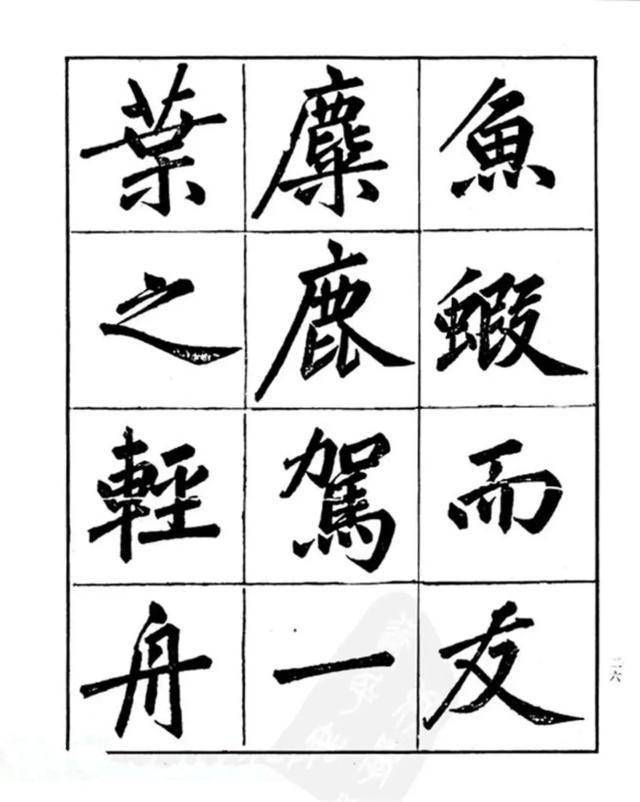 魚蝦而友
麋鹿駕一
葉之輕舟
二六